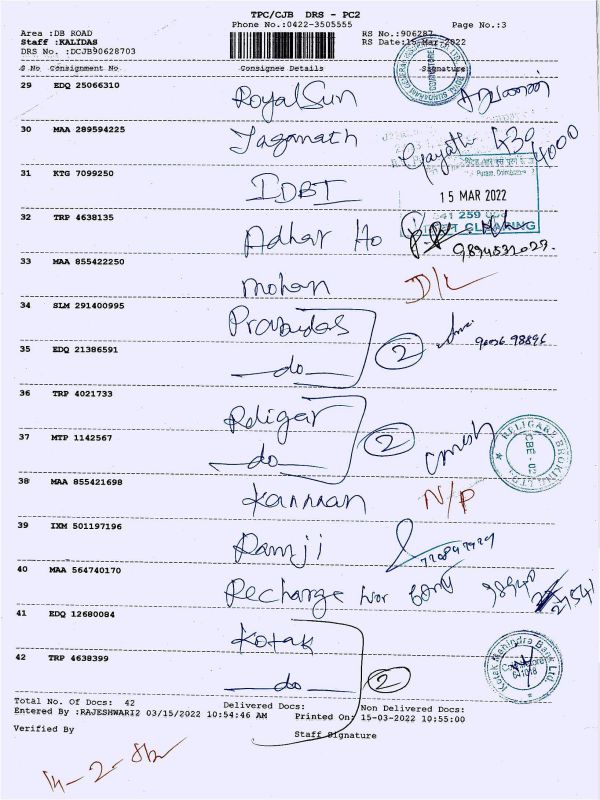 TPC/CJB DRS - PC2
Phone No.:0422-3505555 Page No.:3
Area :DB ROAD RS No.:906287
Staff :KALIDAS RS Date:15-Mar-2022
DRS No. :DCJB90628703
S No Consignment No Consignee Details Signature
29 EDQ 25066310 RoyalSun
30 MAA 289594225 Jaganath Gayathri
31 KTG 7099250 IDBT
15 MAR 2022
641 259
CLEARING
32 TRP 4638135 Adhar Ho
9894532029.
33 MAA 855422250 mohan D/L
34 SLM 291400995 Prabudas
2
35 EDQ 21386591 do 96036 98896
36 TRP 4021733 Religar
2
37 MTP 1142567 do
RELIGARE BROKING LTD.
CBE - 02
38 MAA 855421698 Kannan N/P
39 IXM 501197196 Ramji
40 MAA 564740170 Recharge
41 EDQ 12680084 Kotak
42 TRP 4638399 do 2
Kotak Mahindra Bank Ltd.
Coimbatore
641018
Total No. Of Docs: 42 Delivered Docs: Non Delivered Docs:
Entered By :RAJESHWARI2 03/15/2022 10:54:46 AM Printed On: 15-03-2022 10:55:00
Verified By Staff Signature